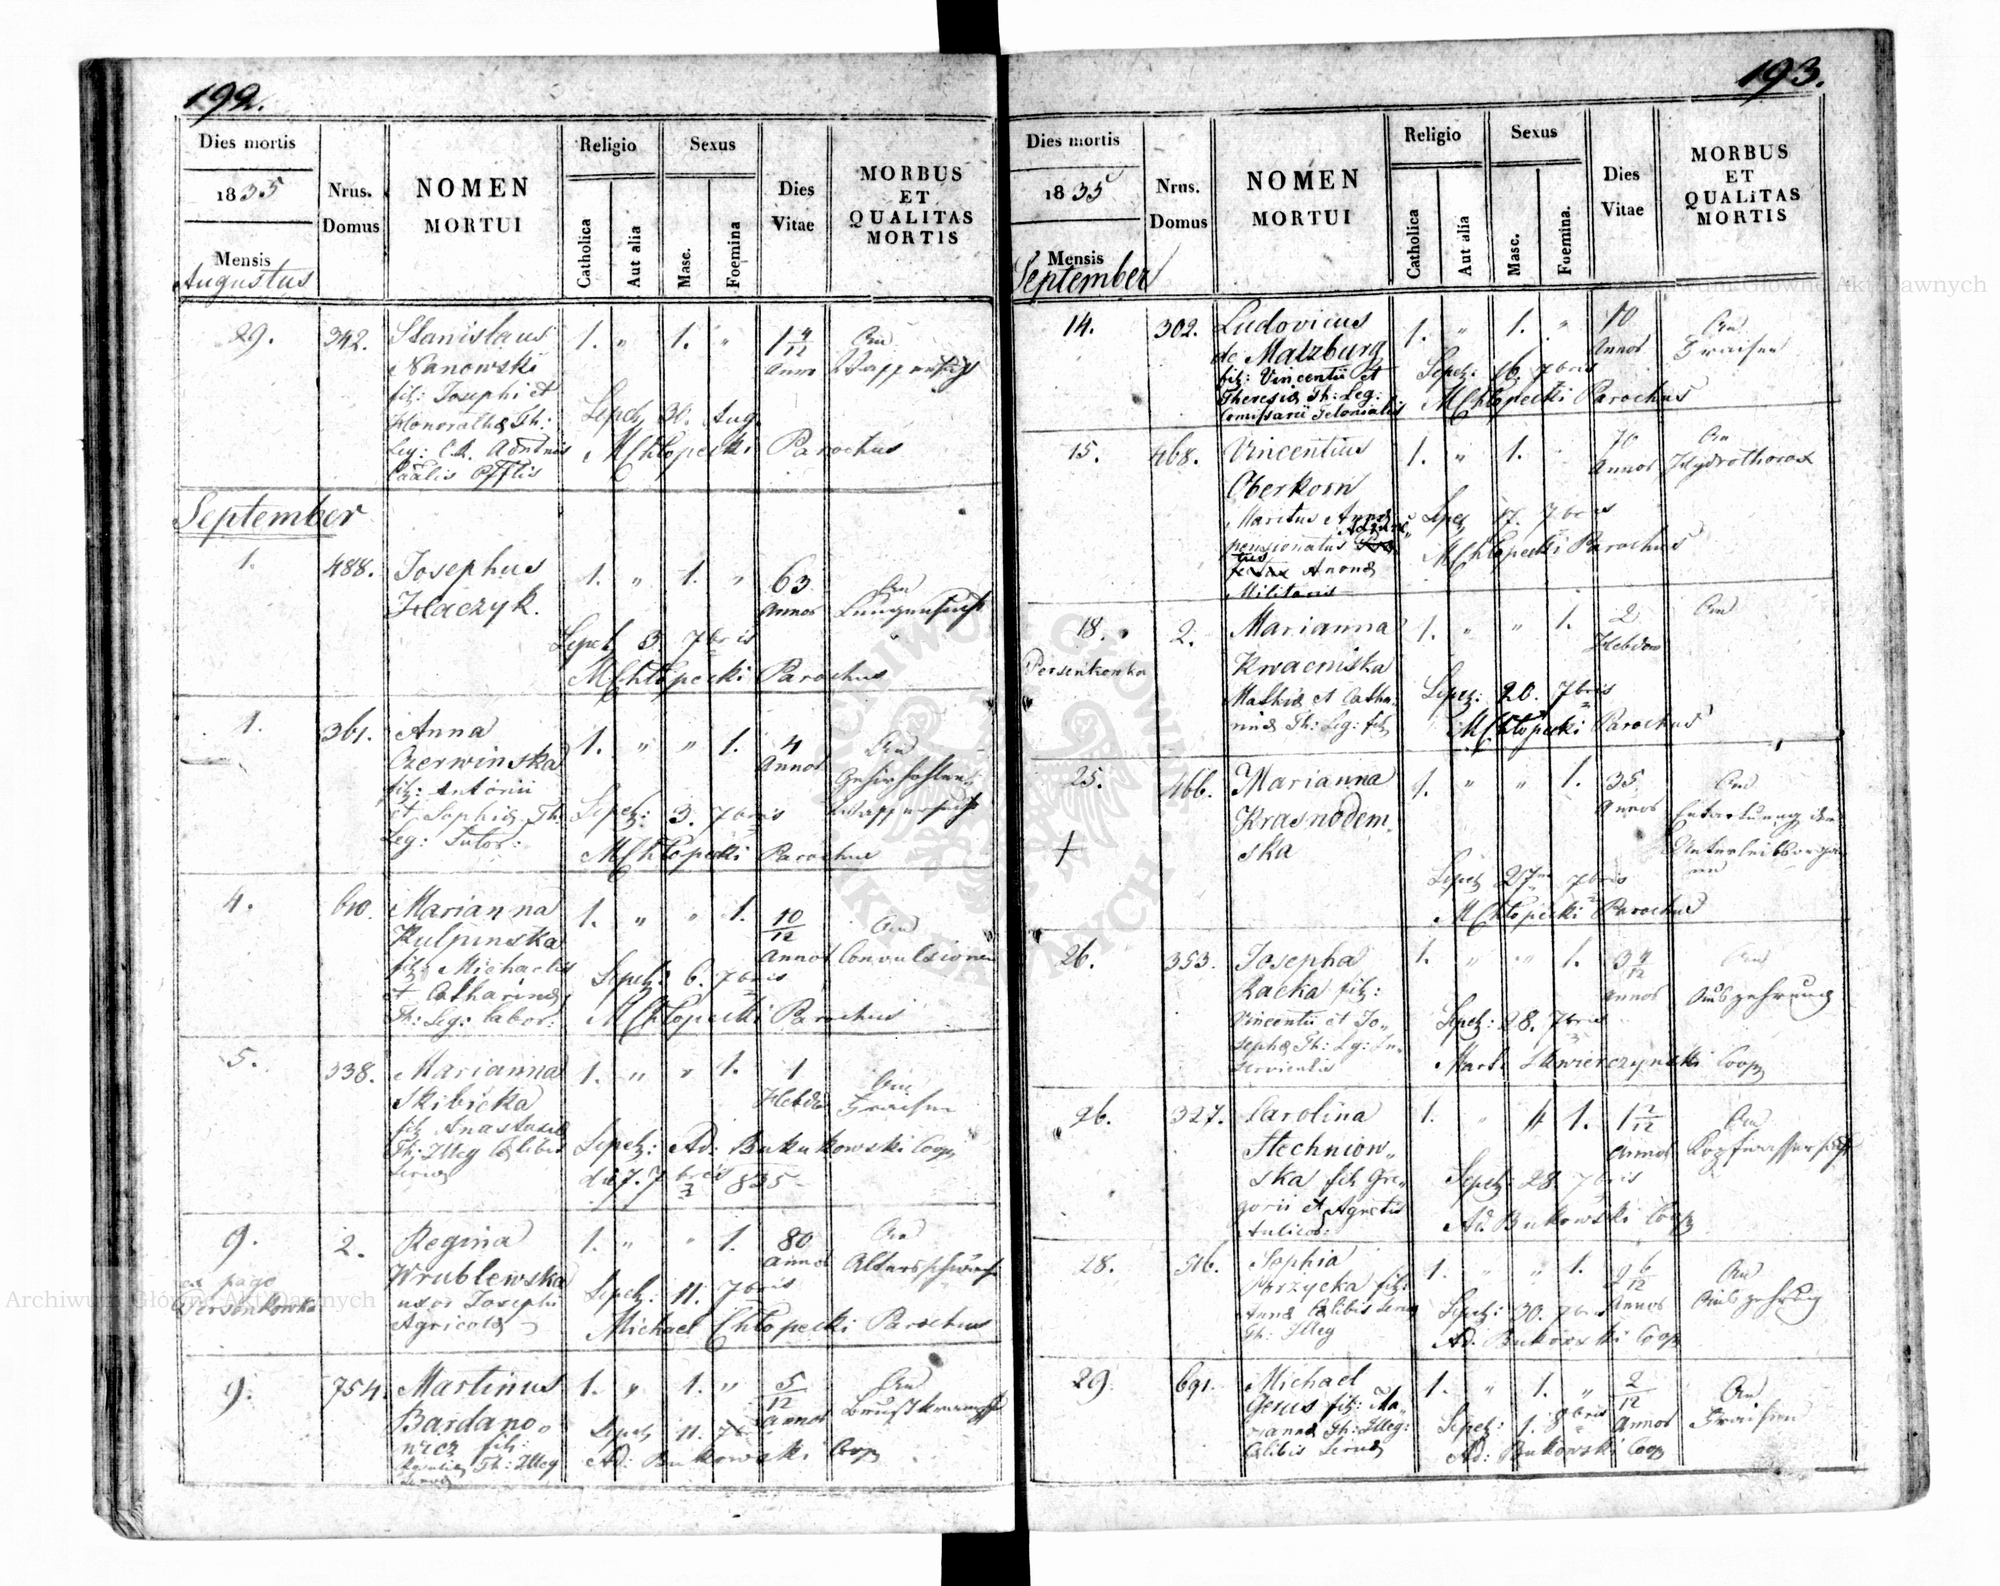 192.
Dies mortis
1835
Mensis
Augustus
Nrus.
Domus
NOMEN
MORTUI
Religio
Catholica
Aut alia
Sexus
Masc.
Foemina
Dies
Vitae
MORBUS
ET
QUALITAS
MORTIS
29.
342.
Stanislaus
Nanowski
fil: Josephi et
Honoratha Th:
Leg: C.R.
1. " 1. "
1 4/12
Anni
An
Sepel: 30. Aug.
MChłopecki Parochus
September
1.
488.
Josephus
Haczyk.
1. " 1. "
63
Annos
An
Lungensucht
Sepel: 3. 7bris
MChłopecki Parochus
1.
361.
Anna
Czerwinska
fil: Antonii
et Sophia Th:
Leg: Sutor:
1. " " 1.
4
Annos
An
Wassersucht
Sepel: 3. 7bris
MChłopecki Parochus
4.
610.
Marianna
Kulpinska
fil: Michaelis
et Catharina
Th: Leg: labor:
1. " " 1.
10/12
Annos
An
Convulsionen
Sepel: 6. 7bris
MChłopecki Parochus
5.
338.
Marianna
Skibicka
fil: Anastasia
Th: Illeg Caelibis
Serva
1. " " 1.
1
Hebdo
An
Fraisen
Sepel: Ad: Bukukowski Coop
die 7. 7bris 835
9.
ex pago
Persenkowka
2.
Regina
Wrublewska
uxor Josephi
Agricola
1. " " 1.
80
Annos
An
Altersschwäche
Sepel: 11. 7bris
Michael Chłopecki Parochus
9.
754.
Martinus
Bardano,,
wicz fil:
Th: Illeg
Serva
1. " 1. "
5/12
Annos
An
Brustkrampf
Sepel 11. 7b
Ad: Bukowski Coop
193.
Dies mortis
1835
Mensis
September
Nrus.
Domus
NOMEN
MORTUI
Religio
Catholica
Aut alia
Sexus
Masc.
Foemina.
Dies
Vitae
MORBUS
ET
QUALITAS
MORTIS
14.
302.
Ludovicus
de Matzburg
fil: Vincentii et
Theresia Th: Leg:
Comissarii Telonialis
1. " 1. "
10
Annos
An
Fraisen
Sepel: 16. 7bris
MChłopecki Parochus
15.
468.
Vincentius
Oberkorn
Maritus Anna
pensionatus
Anona
Militaris
1. " 1.
70
Annos
An
Hydrothorax
Sepel 17. 7bris
MChłopecki Parochus
18.
Persenkowka
2.
Marianna
Kwacniska
Mathia et Catha-
rina Th: Leg: fil
1. " " 1.
2
Hebdom
An
Sepel: 20. 7bris
MChłopecki Parochus
25.
466.
Marianna
Krasnodem,
ska
1. " " 1.
35
Annos
An
Entartung der
Unterleibsorga-
nen
Sepel 27ma 7bris
MChłopecki Parochus
26.
353.
Josepha
Racka fil:
Vincentii et Jo,,
sepha Th: Lg: In,,
servientis
1. " " 1.
3 4/12
Annos
An
Auszehrung
Sepel: 28. 7bris
Mart. Skwierczynski Coop
26.
327.
Carolina
Stechniow,,
ska fil Gre,,
gorii et Agnetis
Aulicor:
1. " " 1.
1 2/12
Annos
An
Kopfwassersucht
Sepel: 28 7bris
Ad: Bukowski Coop
28.
516.
Sophia
fil:
Anna Calibis Serva
Th: Illeg
1. " " 1.
2 6/12
Annos
An
Auszehrung
Sepel: 30. 7bris
Ad: Bukowski Coop
29
691.
Michael
Gerus fil: Ma,,
rianna Th: Illeg:
Calibis Serva
1. " 1. "
2/12
Annos
An
Fraisen
Sepel: 1. 8bris
Ad: Bukowski Coop
Archiwum Główne Akt Dawnych
Archiwum Główne Akt Dawnych
ARCHIWUM GŁÓWNE AKT DAWNYCH